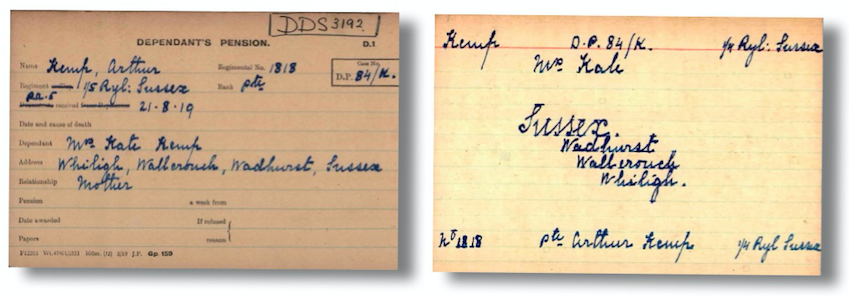 DDS 3192.
DEPENDANT'S PENSION.
D.1
Name Kemp, Arthur Regimental No. 1818
Case No.
D.P. 84/K.
Regiment 1/5 Ryl: Sussex Rank Pte
received 21-8-19
Date and cause of death
Dependant Mrs Kate Kemp
Address Whiligh, Wallcrouch, Wadhurst, Sussex
Relationship Mother
Pension a week from
Date awarded If refused
Papers reason
J.P. Gp 159
Kemp D.P. 84/K. 1/4 Ryl: Sussex
Mrs Kate
Sussex.
Wadhurst
Wallcrouch
Whiligh.
No 1818 Pte Arthur Kemp 1/4 Ryl Sussex